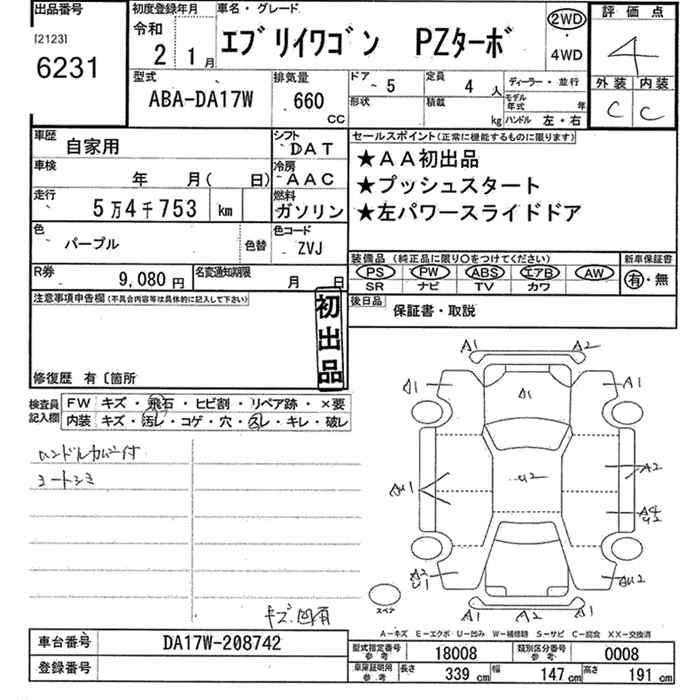 出品番号 初度登録年月 車名・グレード 評価点
[2123]
6231
令和 2 1月 エブリイワゴン PZターボ 2WD ・ 4WD 4
型式 排気量 ドア ・ 5 定員 4人 ディーラー・並行 外装 内装
ABA-DA17W 660 CC 形状 積載 kg モデル年式 年 ハンドル 左・右 C C
車歴 自家用 シフト DAT セールスポイント(正常に機能するものに限ります)
車検 年 月( 日) 冷房 AAC ★AA初出品
★プッシュスタート
走行 5万4千753 km 燃料 ガソリン ★左パワースライドドア
色 パープル 色替 色コード ZVJ
装備品(純正品に限り○をつけてください) 新車保証書
PS PW ABS エアB AW 有・無
SR ナビ TV カワ
R券 9,080円 名変通知期限 月 日
後日品 保証書・取説
注意事項申告欄(不具合内容等は具体的に記入して下さい)
初出品
修復歴 有〔箇所
検査員記入欄 FW キズ・飛石・ヒビ割・リペア跡・×要
内装 キズ・汚レ・コゲ・穴・スレ・キレ・破レ
ハンドルカバー付
シートシミ
キズ、凹有
A1 A2
A1 A1 A1
U2 A2
AU1 A4 U2
A2 U1 AU2
A1 A2 A1
スペア
A-キズ E-エクボ U-凹み W-補修跡 S-サビ C-腐食 XX-交換済
車台番号 DA17W-208742
登録番号
型式指定番号 参考 18008 類別区分番号 参考 0008
車庫証明用 参考 長さ 339 cm 幅 147 cm 高さ 191 cm